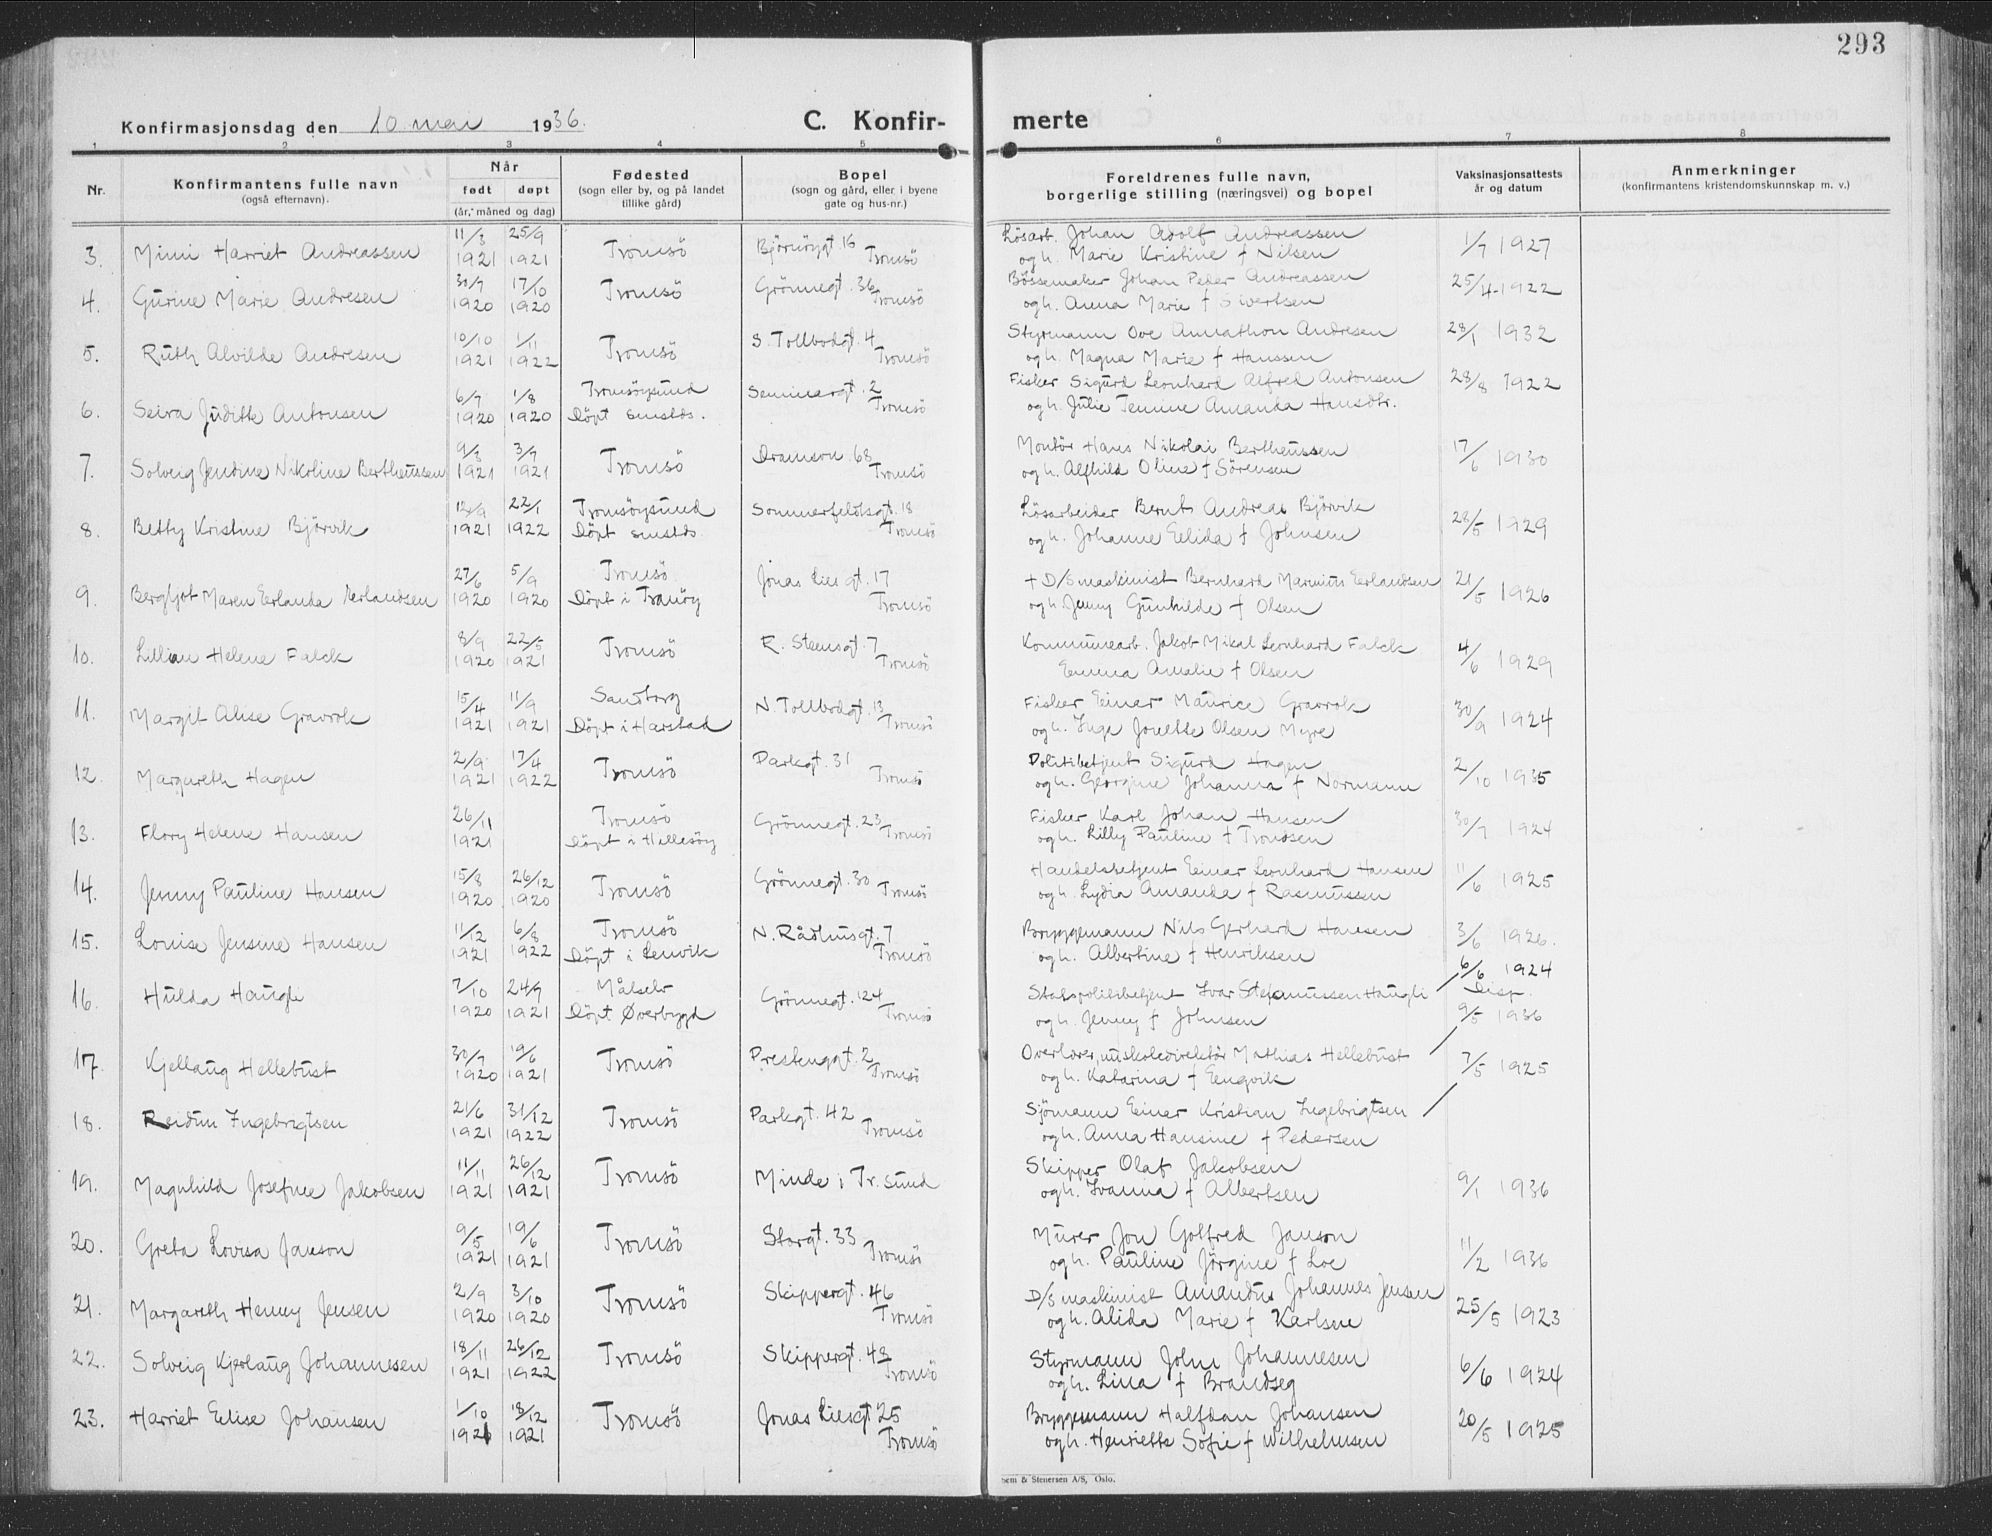 293
Konfirmasjonsdag den 10. mai 1936. C. Konfirmerte
1 2 3 4 5 6 7 8
Nr. Konfirmantens fulle navn (også efternavn). Når født døpt (år, måned og dag) Fødested (sogn eller by, og på landet tillike gård) Bopel (sogn og gård, eller i byene gate og hus-nr.) Foreldrenes fulle navn, borgerlige stilling (næringsvei) og bopel Vaksinasjonsattests år og datum Anmerkninger (konfirmantens kristendomskunnskap m. v.)
3. Mimi Harriet Andreassen 11/3 1921 25/9 1921 Tromsö Björnöygt. 16 Tromsö Lösarb. Johan Adolf Andreassen
og h. Marie Kristine f Nilsen 1/7 1927
4. Gurine Marie Andresen 30/7 1920 17/10 1920 Tromsö Grönnegt. 36 Tromsö Bössemaker Johan Peder Andreassen
og h. Anna Marie f Sivertsen 25/4 1922
5. Ruth Alvilde Andresen 10/10 1921 1/11 1922 Tromsö S. Tollbodgt. 4 Tromsö Styrmann Ove Annathon Andresen
og h. Magna Marie f Hanssen 28/1 1932
6. Seira Judith Antonsen 6/7 1920 1/8 1920 Tromsöysund Döpt smstds. Seminargt. 2 Tromsö Fisker Sigurd Leonhard Alfred Antonsen
og h. Julie Amanda Hansdtr. 28/8 1922
7. Solveig Jendine Nikoline Bertheussen 9/3 1921 3/7 1921 Tromsö 68 Tromsö Montör Hans Nikolai Bertheussen
og h. Alfhild Oline f Sörensen 17/6 1930
8. Betty Kristine Björvik 1921 22/1 1922 Tromsöysund Döpt smstds. Sommerfeldtsgt. 18 Tromsö Lösarbeider Bernt Andreas Björvik
og h. Johanne Elida f Johnsen 28/5 1929
9. Bergljot Maren Erlanda Erlandsen 27/6 1920 5/9 1920 Tromsö Döpt i Tranöy Jonas Lies gt. 17 Tromsö + D/S maskinist Bernhard Marinius Erlandsen
og h. Jenny Gunhilde f Olsen 21/5 1926
10. Lillian Helene Falck 8/9 1920 22/5 1921 Tromsö R. Steensgt. 7 Tromsö Kommunearb. Jakob Mikal Leonhard Falck
Emma Amalie f Olsen 4/6 1929
11. Margit Alise Gravrok 15/4 1921 11/9 1921 Sandtorg Döpt i Harstad N. Tollbodgt. 13 Tromsö Fisker Einar Maurice Gravrok
og h. Inga Jonette Olsen Myre 30/9 1924
12. Margareth Hagen 2/9 1921 17/4 1922 Tromsö Parkgt. 31 Tromsö Politibetjent Sigurd Hagen
og h. Georgine Johanna f Normann 2/10 1935
13. Flory Helene Hansen 26/11 1921 Tromsö Döpt i Hillesöy Grönnegt. 23 Tromsö Fisker Karl Johan Hansen
og h. Lilly Pauline f Trondsen 30/7 1924
14. Jenny Pauline Hansen 15/8 1920 26/12 1920 Tromsö Grönnegt. 30 Tromsö Handelsbetjent Einar Leonhard Hansen
og h. Lydia Amanda f Rasmussen 11/6 1925
15. Lovise Jensine Hansen 11/12 1921 6/8 1922 Tromsö Döpt i Lenvik N. Rådhusgt. 7 Tromsö Bryggemann Nils Gerhard Hansen
og h. Albertine f Henriksen 3/6 1926.
16. Hulda Haugli 7/10 1920 24/7 1921 Målselv Döpt Øverbygd Grönnegt. 124 Tromsö Statspolitibetjent Ivar Stefanussen Haugli
og h. Jenny f Johnsen 6/6 1924
17. Kjellaug Hellebust 30/7 1920 19/6 1921 Tromsö Prestenggt. 2 Tromsö Overlærer, Mathias Hellebust
og h. Katarina f Engvik Disp. 9/5 1936
18. Reidun Ingebrigtsen 21/6 1921 31/12 1922 Tromsö Parkgt. 42 Tromsö Sjömann Einar Kristian Ingebrigtsen
og h. Anna Hansine f Pedersen 7/5 1925
19. Magnhild Josefine Jakobsen 11/11 1921 26/12 1921 Tromsö Minde i Tr. sund Skipper Olaf Jakobsen
og h. Ivanna f Albertsen 9/1 1936
20. Greta Lovisa Janson 9/5 1921 19/6 1921 Tromsö Storgt. 33 Tromsö Murer Jon Gotfred Janson
og h. Pauline Jörgine f Loe 11/2 1936
21. Margareth Henny Jensen 2/9 1920 3/10 1920 Tromsö Skippergt. 46 Tromsö D/S maskinist Amandus Johannes Jensen
og h. Alida Marie f Karlsne 25/5 1923
22. Solveig Kjerlaug Johannesen 18/11 1921 26/12 1922 Tromsö Skippergt. 48 Tromsö Styrmann John Johannesen
og h. Lina f Brandseg 6/6 1924
23. Harriet Elise Johansen 1/10 1921 18/12 1921 Tromsö Jonas Liesgt 25 Tromsö Bryggemann Halfdan Johansen
og h. Henriette Sofie f Wilhelmsen 20/5 1925
& Stenersen A/S, Oslo.